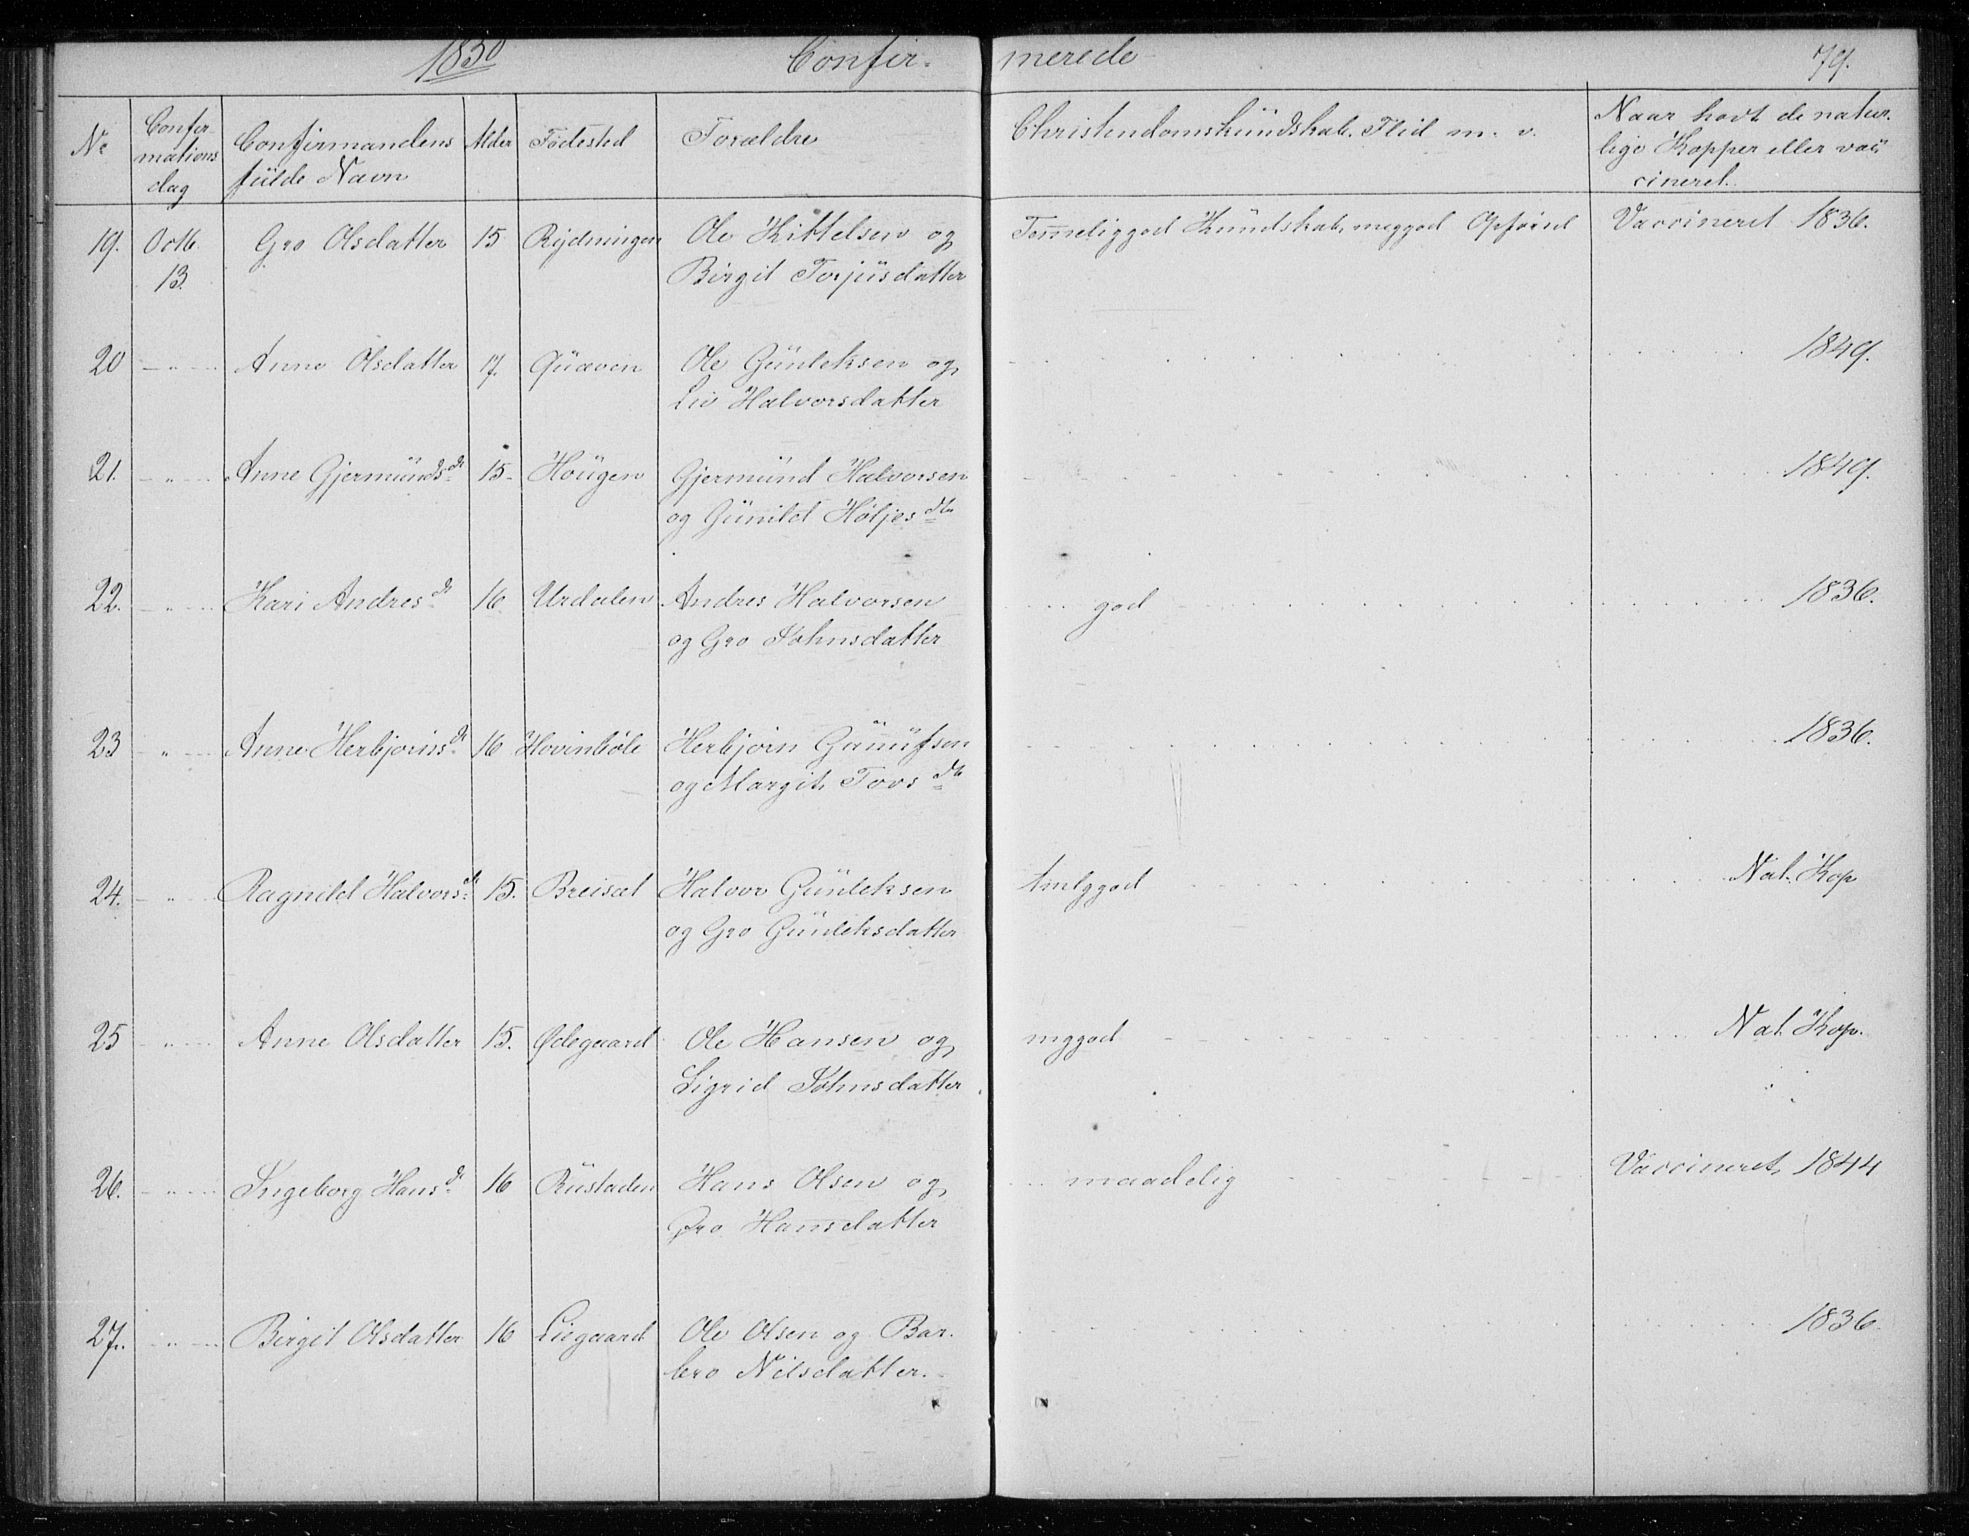 1850 Confir- merede 79.
No
Confir-
mations
dag
Confirmandens
fulde Navn
Alder
Fødested
Forældre
Christendomskundskab, Flid m. v.
Naar havt de natur-
lige Kopper eller vac-
cineret.
19. Octb. Gro Olsdatter 15 Rydningen Ole Kittelsen og Temeliggod Kundskab, meggod Opførsel Vaccineret 1836.
13. Birgit Torjusdatter
20 — " — Anne Olsdatter 17. Quæven Ole Gunleksen og 1849.
Liv Halvorsdatter
21. — " — Anne Gjermundsdr 15 Hougen Gjermund Halvorsen 1849.
og Gunild Høljesdtr
22. — " — Kari Andresdr 16 Urdalen Andres Halvorsen god 1836.
og Gro Johnsdatter
23 — " — Anne Herbjørnsdr 16 Hovinbøle Herbjørn Gunufsen 1836.
og Margit Tovsdtr
24. — " — Ragnild Halvorsdr 15. Breisat Halvor Gunleksen tmlggod Nat. Kop
og Gro Gunleksdatter
25 — " — Anne Olsdatter 15. Ødegaard Ole Hansen og mggod Nat. Kop.
Sigrid Johnsdatter
26. — " — Ingeborg Hansdr 16 Rustaden Hans Olsen og maadelig Vaccineret 1844
Gro Hansdatter
27. — " — Birgit Olsdatter 16 Liegaard Ole Olsen og Bar- 1836.
bro Nilsdatter.